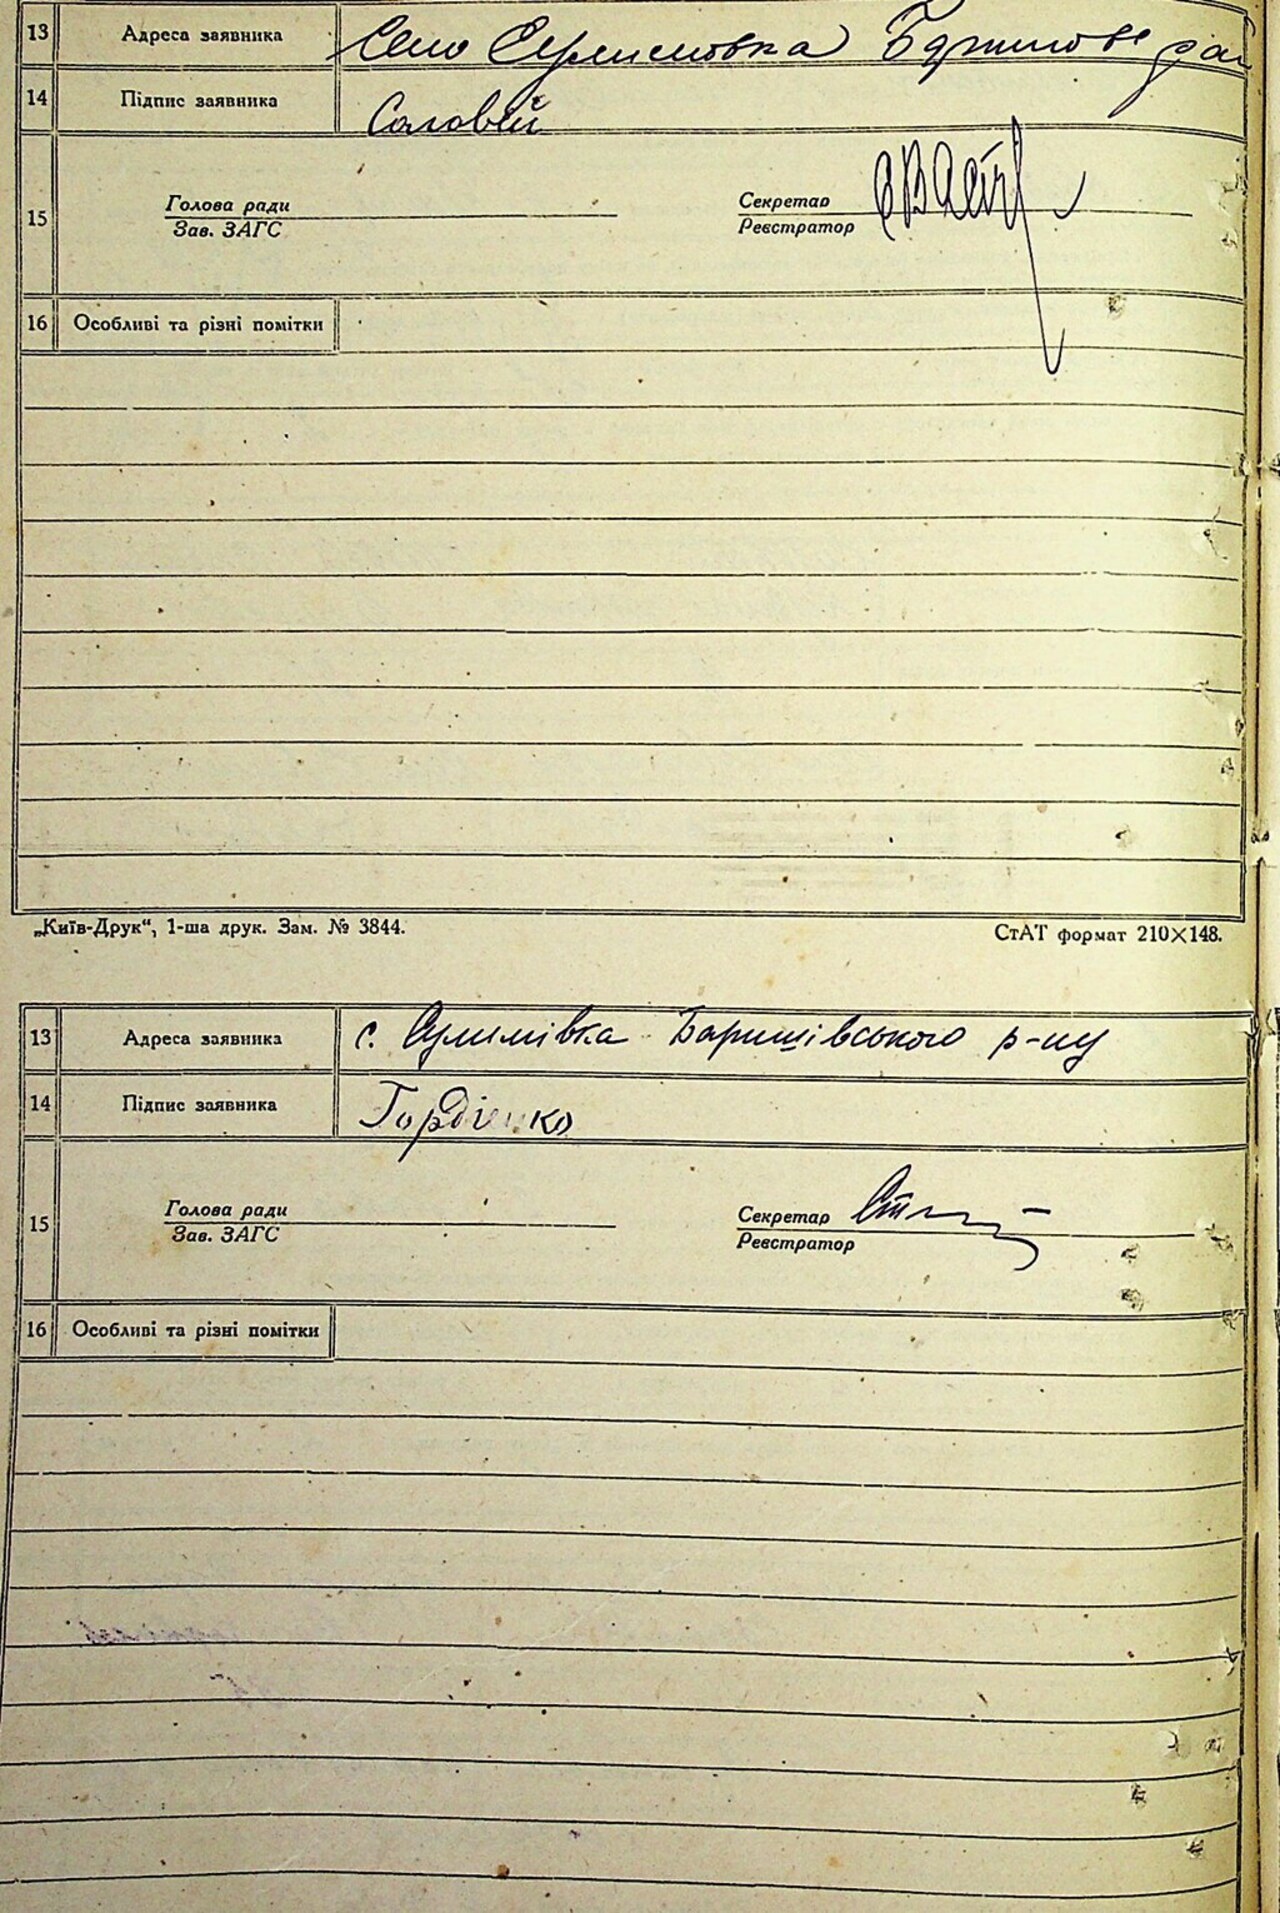 13 Адреса заявника Село Сулимовка Бориспове рай
14 Підпис заявника Соловей
15 Голова ради Секретар
Зав. ЗАГС Реєстратор
16 Особливі та різні помітки
„Київ-Друк“, 1-ша друк. Зам. № 3844. СтАТ формат 210×148.
13 Адреса заявника с. Сулимівка Баришівського р-ну
14 Підпис заявника Гордієнко
15 Голова ради Секретар
Зав. ЗАГС Реєстратор
16 Особливі та різні помітки